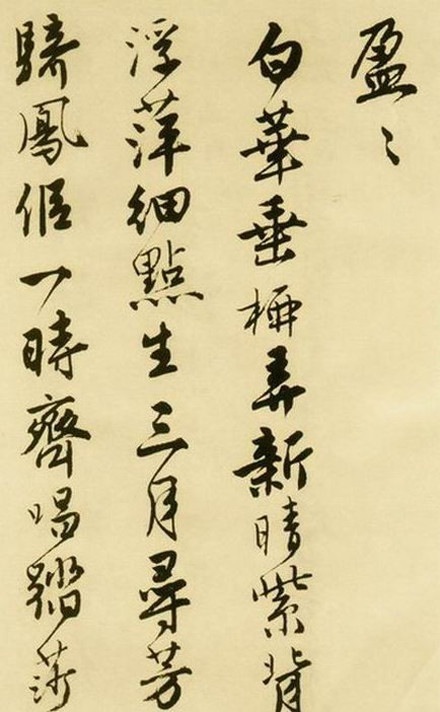 盈〻
白華垂桺弄新晴紫背
浮萍細點生三月尋芳
騎鳳侶一時齊唱踏莎